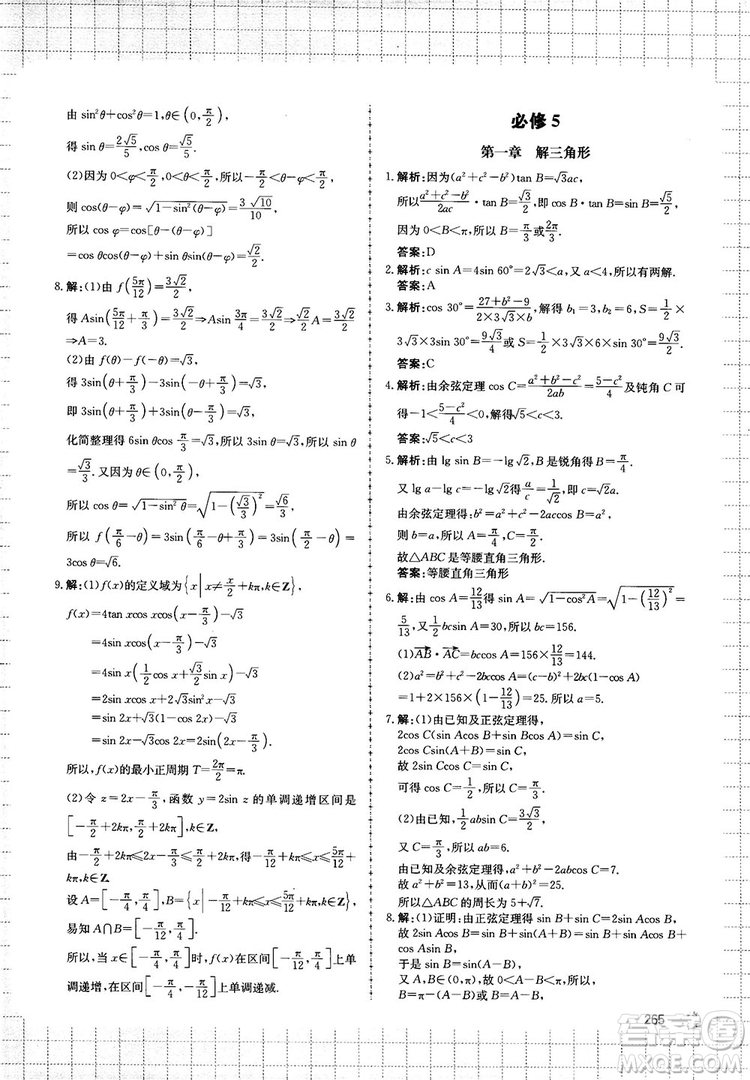 由 sin²θ+cos²θ=1,θ∈(0,π/2)
得 sin θ=2√5/5,cos θ=√5/5.
(2)因为 0<φ<π/2,0<θ<π/2,所以-π/2<θ-φ<π/2.
则 cos(θ-φ)=√(1-sin²(θ-φ))=3√10/10,
所以 cos φ=cos[θ-(θ-φ)]
=cos θcos(θ-φ)+sin θsin(θ-φ)=√2/2.
8.解:(1)由 f(5π/12)=3√2/2,
得 Asin(5π/12+π/3)=3√2/2⇒Asin 3π/4=3√2/2⇒√2/2A=3√2/2
⇒A=3.
(2)由 f(θ)-f(-θ)=√3
得 3sin(θ+π/3)-3sin(-θ+π/3)=√3,
即 3sin(θ+π/3)+3sin(θ-π/3)=√3,
化简整理得 6sin θcos π/3=√3,所以 3sin θ=√3,所以 sin θ
=√3/3.又因为 θ∈(0,π/2),
所以 cos θ=√(1-sin²θ)=√(1-(√3/3)²)=√6/3,
所以 f(π/6-θ)=3sin(π/6-θ+π/3)=3sin(π/2-θ)=
3cos θ=√6.
9.解:(1)f(x)的定义域为{x|x≠π/2+kπ,k∈Z},
f(x)=4tan xcos xcos(x-π/3)-√3
=4sin xcos(x-π/3)-√3
=4sin x(1/2cos x+√3/2sin x)-√3
=2sin xcos x+2√3sin²x-√3
=sin 2x+√3(1-cos 2x)-√3
=sin 2x-√3cos 2x=2sin(2x-π/3).
所以,f(x)的最小正周期 T=2π/2=π.
(2)令 z=2x-π/3,函数 y=2sin z 的单调递增区间是
[-π/2+2kπ,π/2+2kπ],k∈Z,
由-π/2+2kπ≤2x-π/3≤π/2+2kπ,得-π/12+kπ≤x≤5π/12
+kπ,k∈Z.
设 A=[-π/4,π/4],B={x|-π/12+kπ≤x≤5π/12+kπ,k∈Z},
易知 A∩B=[-π/12,π/4].
所以,当 x∈[-π/4,π/4]时,f(x)在区间[-π/12,π/4]上单
调递增,在区间[-π/4,-π/12]上单调递减.
必修 5
第一章 解三角形
1.解析:因为(a²+c²-b²)tan B=√3ac,
所以(a²+c²-b²)/2ac·tan B=√3/2,即 cos B·tan B=sin B=√3/2,
因为 0<B<π,所以 B=π/3或2π/3.
答案:D
2.解析:c sin A=4sin 60°=2√3<a,又 a<4,所以有两解.
答案:A
3.解析:cos 30°=(27+b²-9)/(2×3√3×b),解得 b₁=3,b₂=6,S=1/2×
3√3×3sin 30°=9√3/4或 S=1/2×3√3×6×sin 30°=9√3/2.
答案:C
4.解析:由余弦定理 cos C=(a²+b²-c²)/2ab=(5-c²)/4及钝角 C 可
得-1<(5-c²)/4<0,解得√5<c<3.
答案:√5<c<3
5.解析:由 lg sin B=-lg √2,B 是锐角得 B=π/4.
又 lg a-lg c=-lg√2,即 c=√2a,
由余弦定理得:b²=a²+c²-2accos B=a²,
则 b=a,所以 A=B=π/4,所以 C=π/2,
故△ABC 是等腰直角三角形.
答案:等腰直角三角形
6.解:由 cos A=12/13得 sin A=√(1-cos²A)=√(1-(12/13)²)=
5/13,又1/2bcsin A=30,所以 bc=156.
(1)AB·AC=bccos A=156×12/13=144.
(2)a²=b²+c²-2bccos A=(c-b)²+2bc(1-cos A)
=1+2×156×(1-12/13)=25.所以 a=5.
7.解:(1)由已知及正弦定理得,
2cos C(sin Acos B+sin Bcos A)=sin C,
2cos Csin(A+B)=sin C,
故 2sin Ccos C=sin C,
可得 cos C=1/2,所以 C=π/3.
(2)由已知,1/2absin C=3√3/2,
又 C=π/3,所以 ab=6.
由已知及余弦定理得,a²+b²-2abcos C=7.
故 a²+b²=13,从而(a+b)²=25.
故△ABC 的周长为 5+√7.
8.解:(1)证明:由正弦定理得 sin B+sin C=2sin Acos B,
故 2sin Acos B=sin B+sin(A+B)=sin B+sin Acos B+
cos Asin B,
于是 sin B=sin(A-B).
又 A、B∈(0,π),故 0<A-B<π,所以
B=π-(A-B)或 B=A-B.
265
答案圈
MXQE.COM